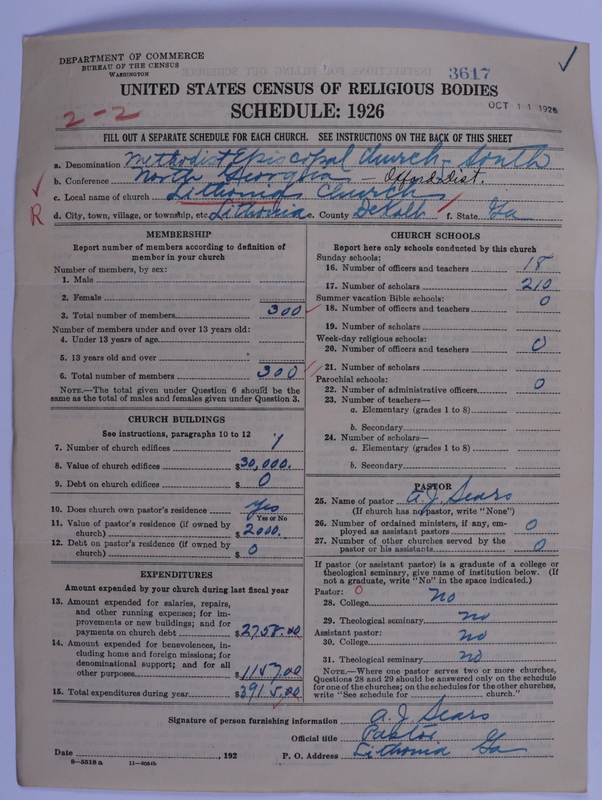 DEPARTMENT OF COMMERCE
BUREAU OF THE CENSUS
WASHINGTON
3617
UNITED STATES CENSUS OF RELIGIOUS BODIES
OCT 11 1926
2-2
SCHEDULE: 1926
FILL OUT A SEPARATE SCHEDULE FOR EACH CHURCH. SEE INSTRUCTIONS ON THE BACK OF THIS SHEET
a. Denomination Methodist Episcopal Church-South
b. Conference North Georgia - Oxford Dist.
c. Local name of church Lithonia Church
R
d. City, town, village, or township, etc. Lithonia e. County DeKalb f. State Ga
MEMBERSHIP
Report number of members according to definition of
member in your church
Number of members, by sex:
1. Male
2. Female
3. Total number of members 300
Number of members under and over 13 years old:
4. Under 13 years of age
5. 13 years old and over
6. Total number of members 300
NOTE.—The total given under Question 6 should be the
same as the total of males and females given under Question 3.
CHURCH BUILDINGS
See instructions, paragraphs 10 to 12
7. Number of church edifices 1
8. Value of church edifices $30,000.
9. Debt on church edifices $ 0
10. Does church own pastor's residence Yes
Yes or No
11. Value of pastor's residence (if owned by
church) $2000.
12. Debt on pastor's residence (if owned by
church) $ 0
EXPENDITURES
Amount expended by your church during last fiscal year
13. Amount expended for salaries, repairs,
and other running expenses; for im-
provements or new buildings; and for
payments on church debt $2758.00
14. Amount expended for benevolences, in-
cluding home and foreign missions; for
denominational support; and for all
other purposes $1157.00
15. Total expenditures during year $3915.00
CHURCH SCHOOLS
Report here only schools conducted by this church
Sunday schools:
16. Number of officers and teachers 18
17. Number of scholars 210
Summer vacation Bible schools:
18. Number of officers and teachers 0
19. Number of scholars
Week-day religious schools:
20. Number of officers and teachers 0
21. Number of scholars
Parochial schools:
22. Number of administrative officers 0
23. Number of teachers—
a. Elementary (grades 1 to 8)
b. Secondary
24. Number of scholars—
a. Elementary (grades 1 to 8)
b. Secondary
PASTOR
25. Name of pastor A. J. Sears
(If church has no pastor, write "None")
26. Number of ordained ministers, if any, em-
ployed as assistant pastors 0
27. Number of other churches served by the
pastor or his assistants 0
If pastor (or assistant pastor) is a graduate of a college or
theological seminary, give name of institution below. (If
not a graduate, write "No" in the space indicated.)
Pastor: 0
28. College No
29. Theological seminary no
Assistant pastor:
30. College no
31. Theological seminary no
NOTE.—Where one pastor serves two or more churches,
Questions 28 and 29 should be answered only on the schedule
for one of the churches; on the schedules for the other churches,
write "See schedule for church."
Signature of person furnishing information A. J. Sears
Official title Pastor
Date , 192 P. O. Address Lithonia Ga
8-5518 a